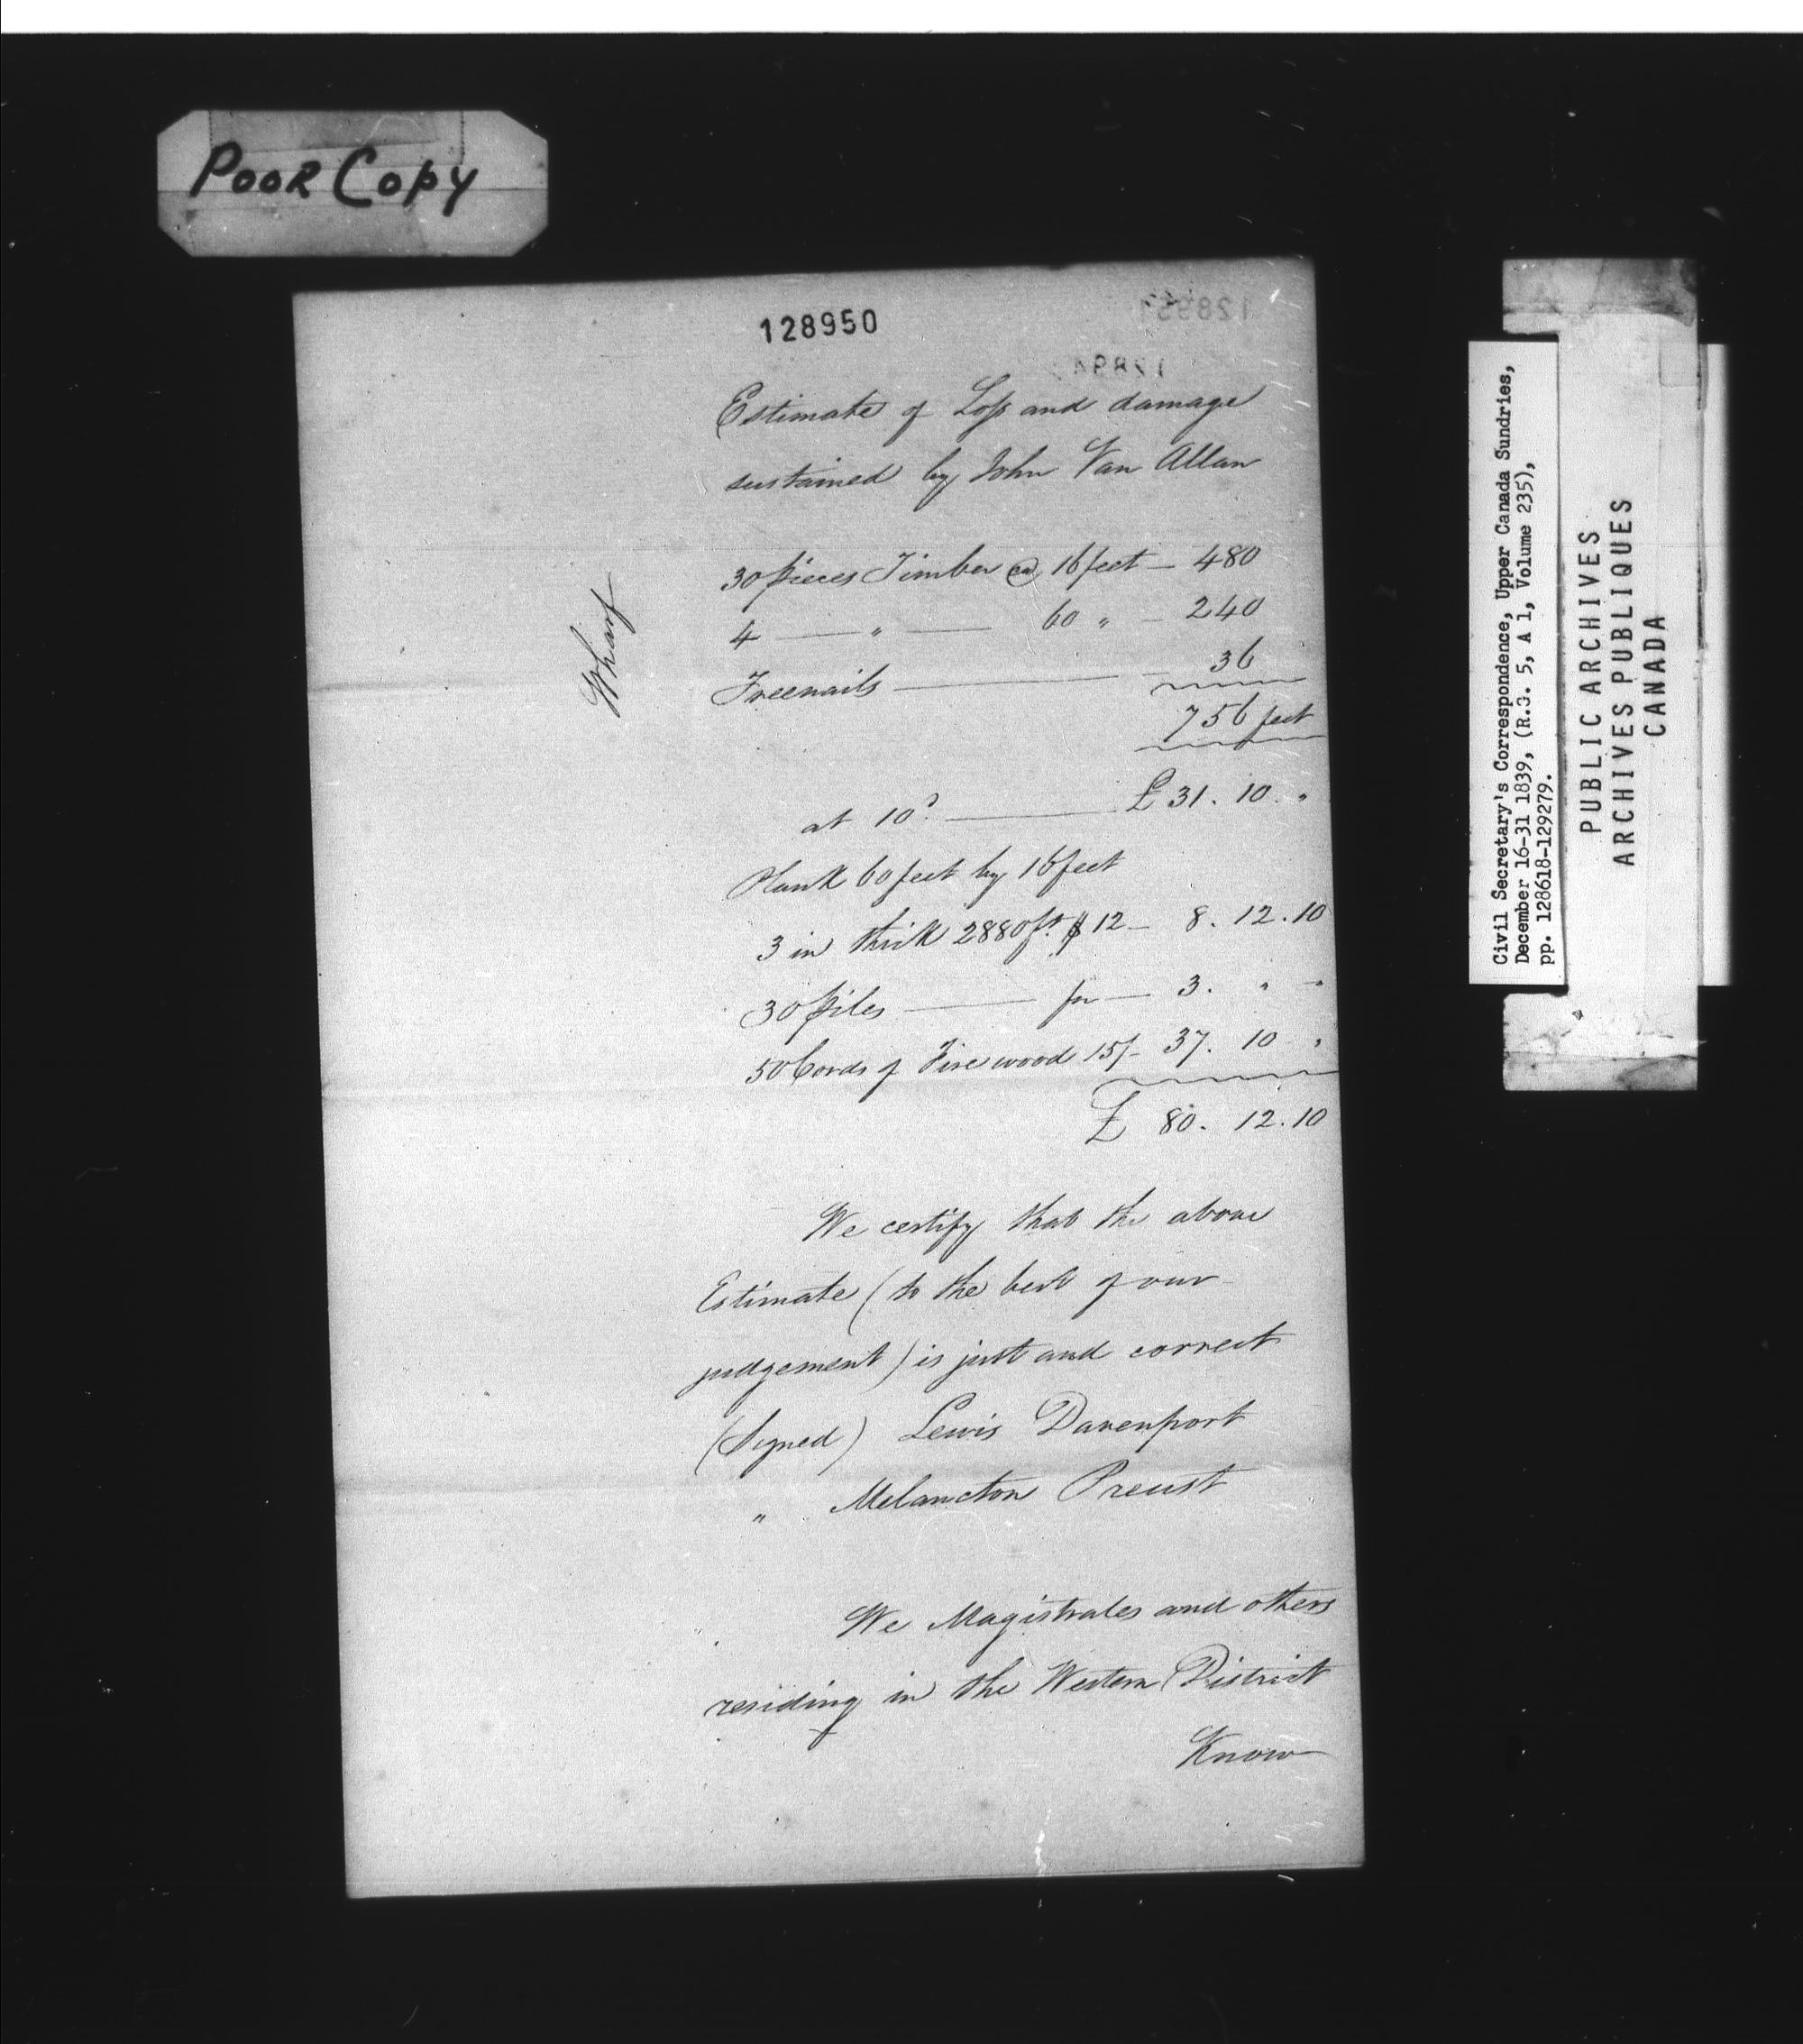 Poor Copy
128950
128951
Estimate of Loss and damage
sustained by John Van Allan
Wharf
30 pieces Timber @ 16 feet — 480
4 — " — 60 " — 240
Treenails — 36
756 feet
at 10d — £ 31. 10. "
Plank 60 feet by 16 feet
3 in thick 2880 ft. $12 — 8. 12. 10
30 Piles — for — 3. " "
50 Cords of Fire wood 15/- 37. 10 "
£ 80. 12. 10
We certify that the above
Estimate (to the best of our
judgement) is just and correct
(Signed) Lewis Davenport
" Melancton Preust
We Magistrates and others
residing in the Western District
Know
Civil Secretary's Correspondence, Upper Canada Sundries,
December 16-31 1839, (R.G. 5, A 1, Volume 235),
pp. 128618-129279.
PUBLIC ARCHIVES
ARCHIVES PUBLIQUES
CANADA